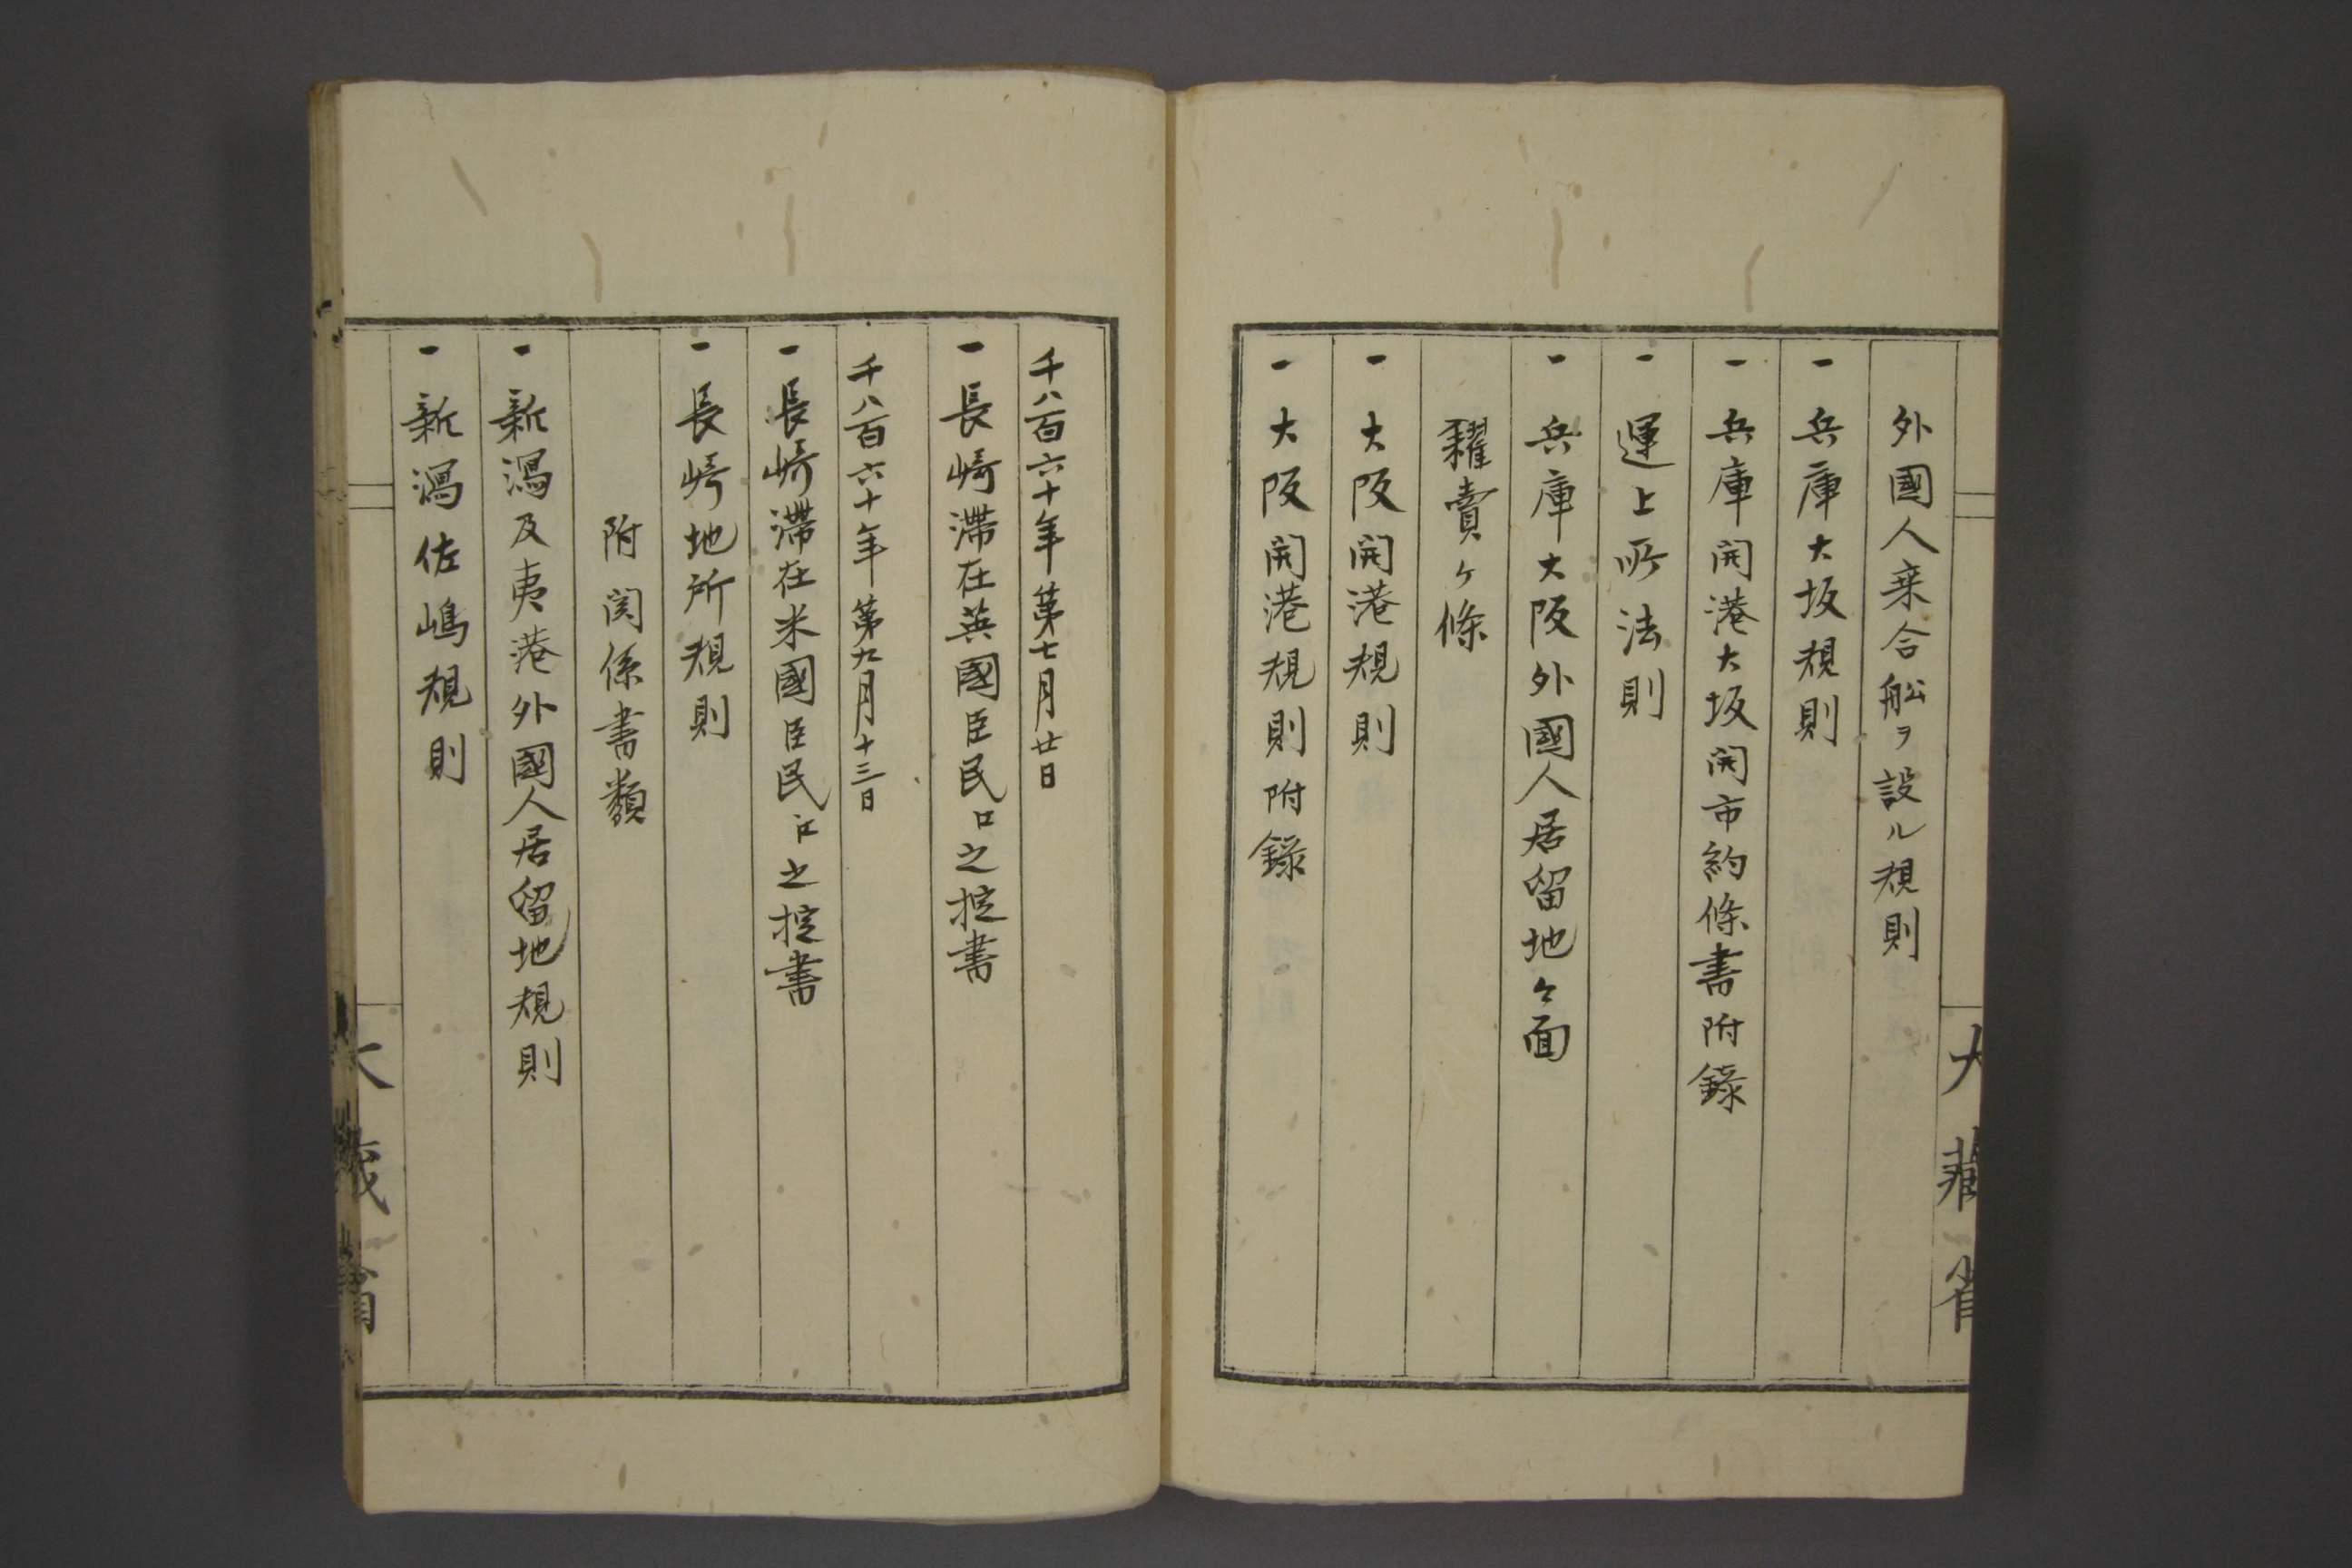 外國人乗合舩ヲ設ル規則
一 兵庫大坂規則
一 兵庫開港大坂開市約條書附錄
一 運上所法則
一 兵庫大阪外國人居留地々面
糶賣ヶ條
一 大阪開港規則
一 大阪開港規則附錄
大藏省
千八百六十年第七月廿日
一 長崎滞在英國臣民口之掟書
千八百六十年第九月十三日
一 長崎滞在米國臣民江之掟書
一 長崎地所規則
附関係書類
一 新潟及夷港外國人居留地規則
一 新潟佐嶋規則
大藏省